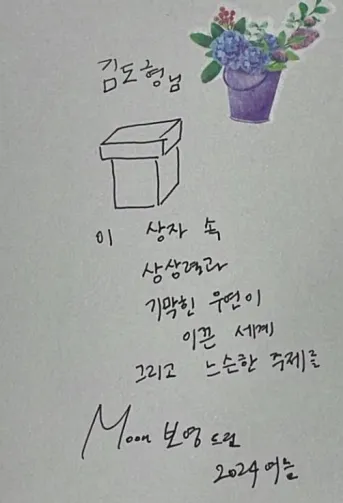 김도형님
이 상자 속
상상력과
기막힌 우연이
이끈 세계
그리고 느슨한 주제를
Moon 보영 드림
2024 여름